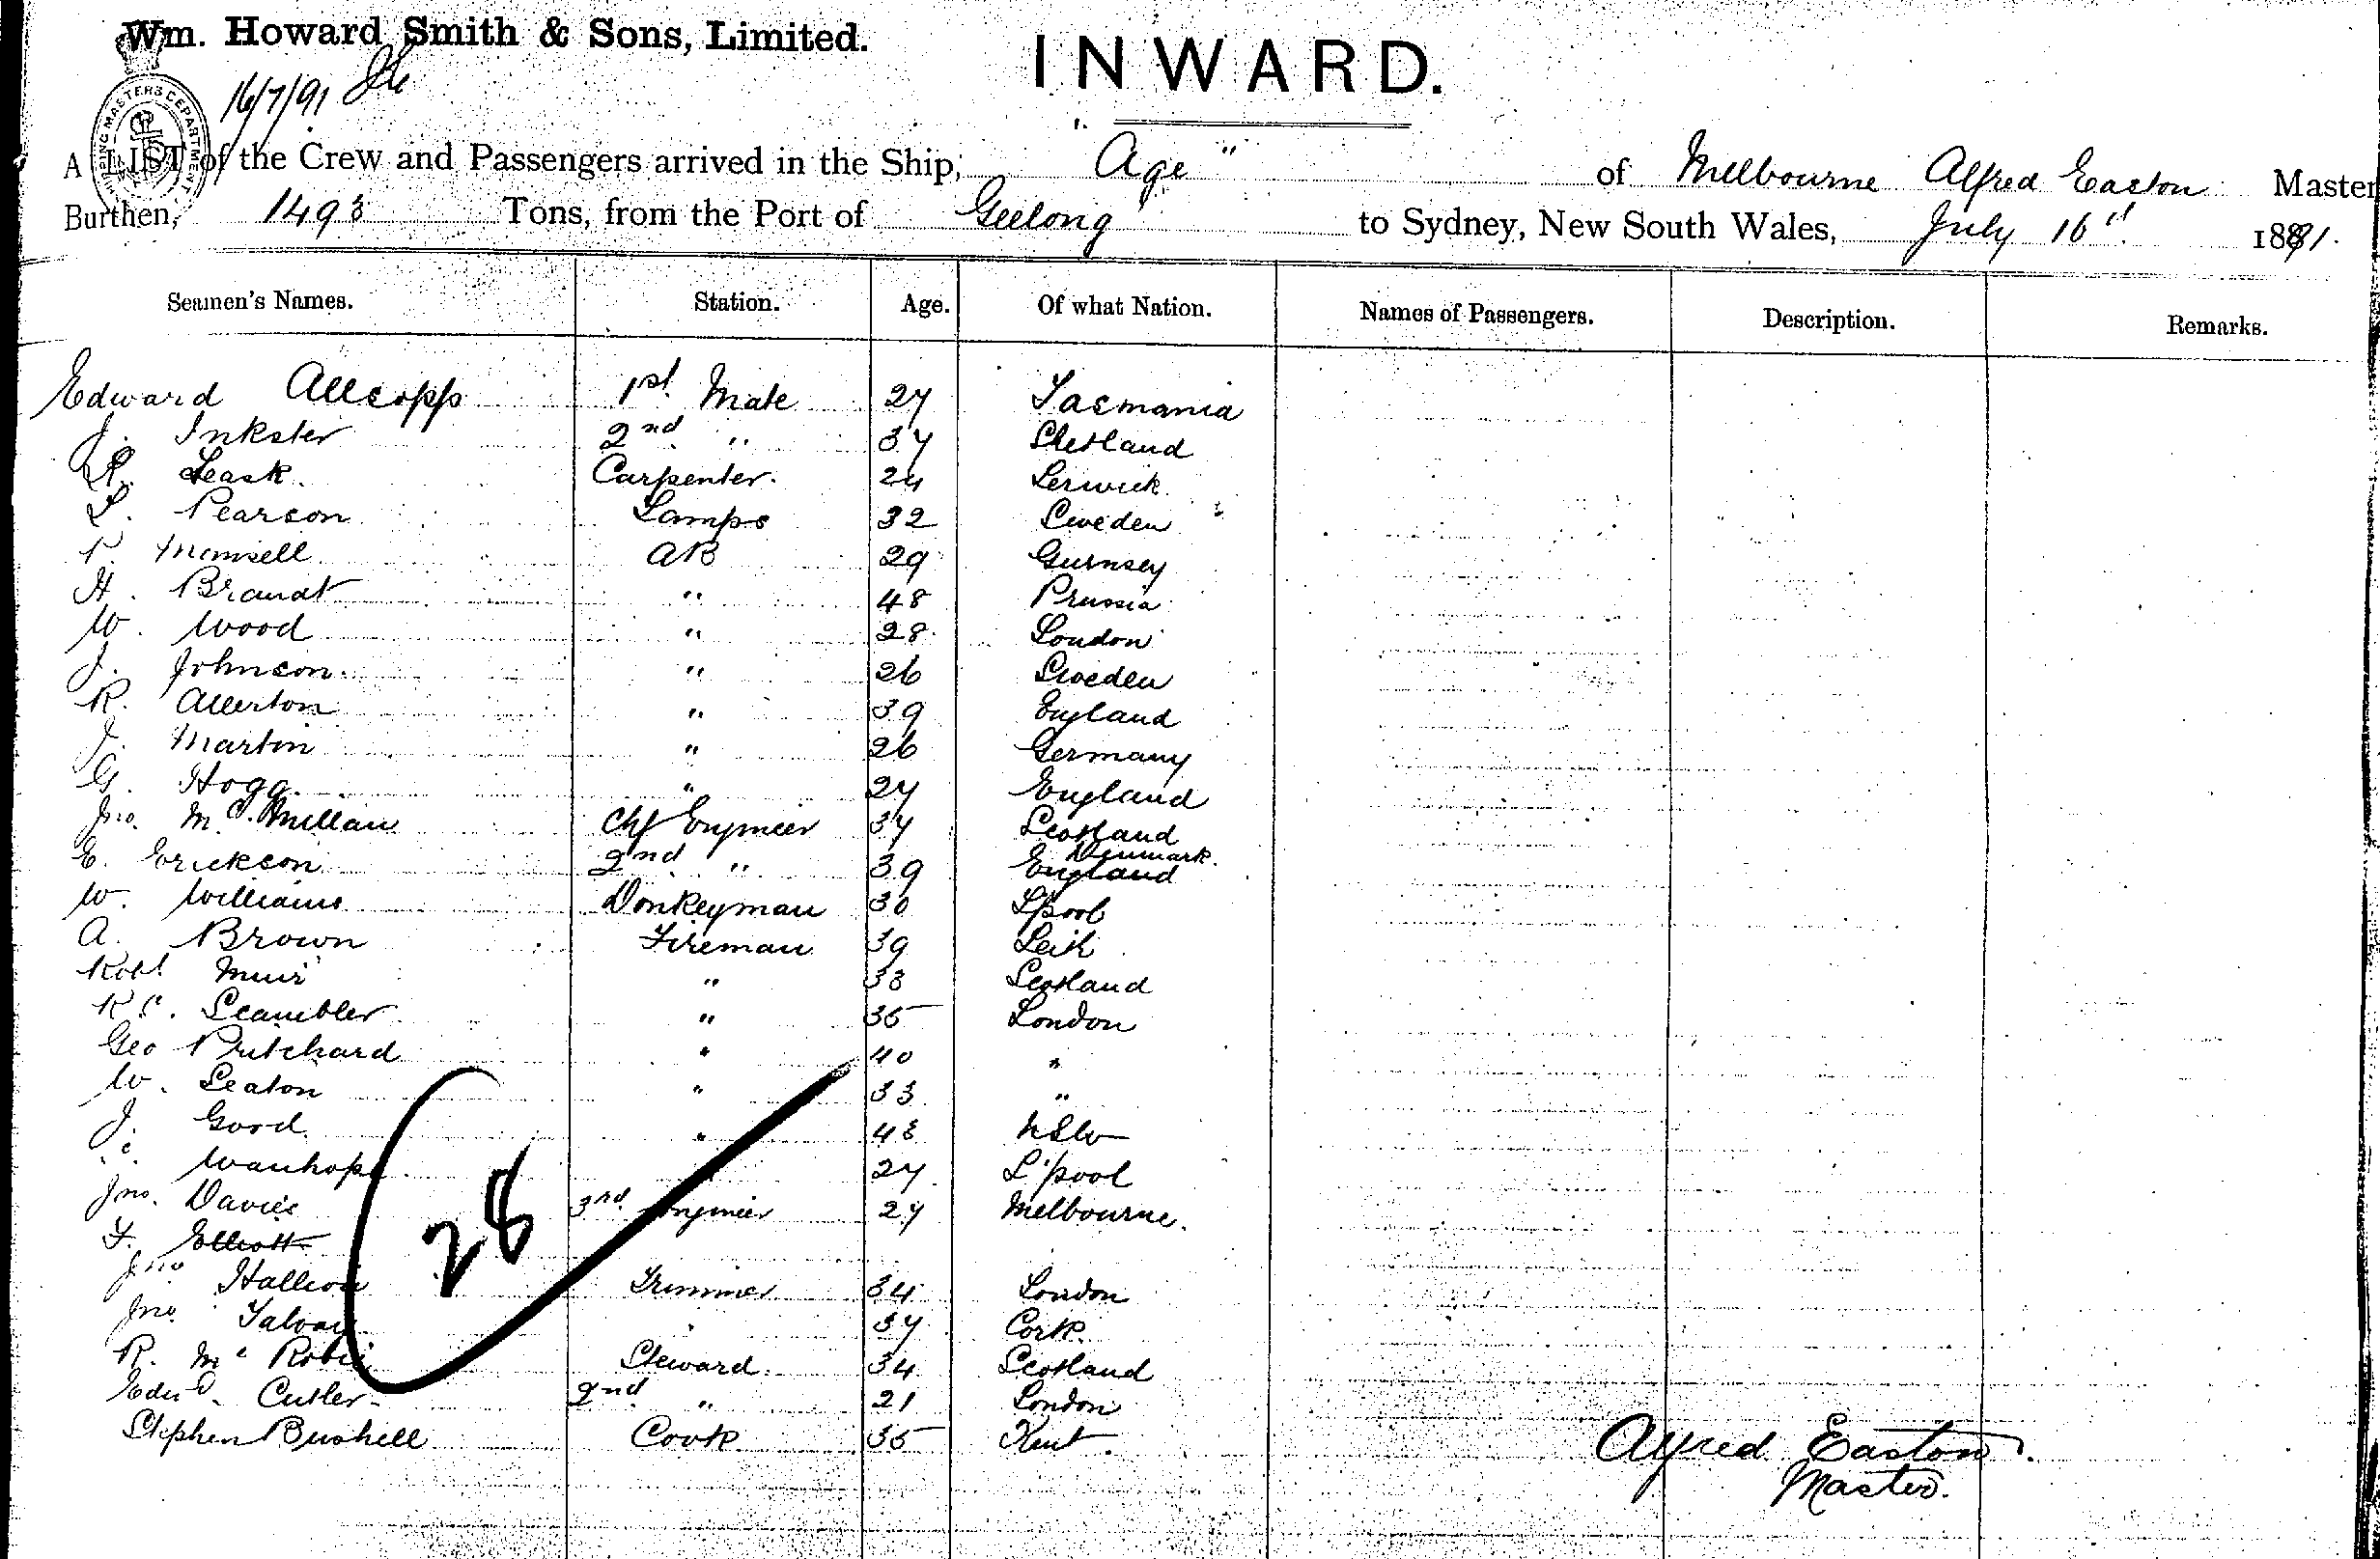 Wm. Howard Smith & Sons, Limited.
INWARD.
16/7/91
SHIPPING MASTERS DEPARTMENT
A LIST of the Crew and Passengers arrived in the Ship, "Age" of Melbourne Alfred Easton Master
Burthen, 1493 Tons, from the Port of Geelong to Sydney, New South Wales, July 16th 1891.
Seamen's Names. Station. Age. Of what Nation. Names of Passengers. Description. Remarks.
Edward Allsopp 1st Mate 27 Tasmania
J. Inkster 2nd " 37 Shetland
Leask Carpenter. 24 Lerwick
L. Pearson Lamps 32 Sweden
P. Monsell AB 29 Gurnsey
H. Brandt " 48 Prussia
W. Wood " 28 London
J. Johnson " 26 Sweden
R. Allerton " 39 England
J. Martin " 26 Germany
G. Hogg " 24 England
Jno. McMillan Chf Engineer 37 Scotland
E. Erickson 2nd " 39 England Denmark.
W. Williams Donkeyman 30 Lpool
A. Brown Fireman 39 Leith
Robt Muir " 33 Scotland
R C. Scambler " 35 London
Geo Pritchard " 40 "
W. Seaton " 33 "
J. Gord " 43 NSW
Wauhope " 27 L'pool
Jno. Davies 3rd Engineer 27 Melbourne.
F. Elliott
Jno Hallion Trimmer 34 London
Jno. Talvan " 37 Cork
R. Mc Robie Steward 34 Scotland
Edwd. Cutler 2nd " 21 London
Stephen Bushell Cook 35 Kent.
28
Alfred Easton.
Master.